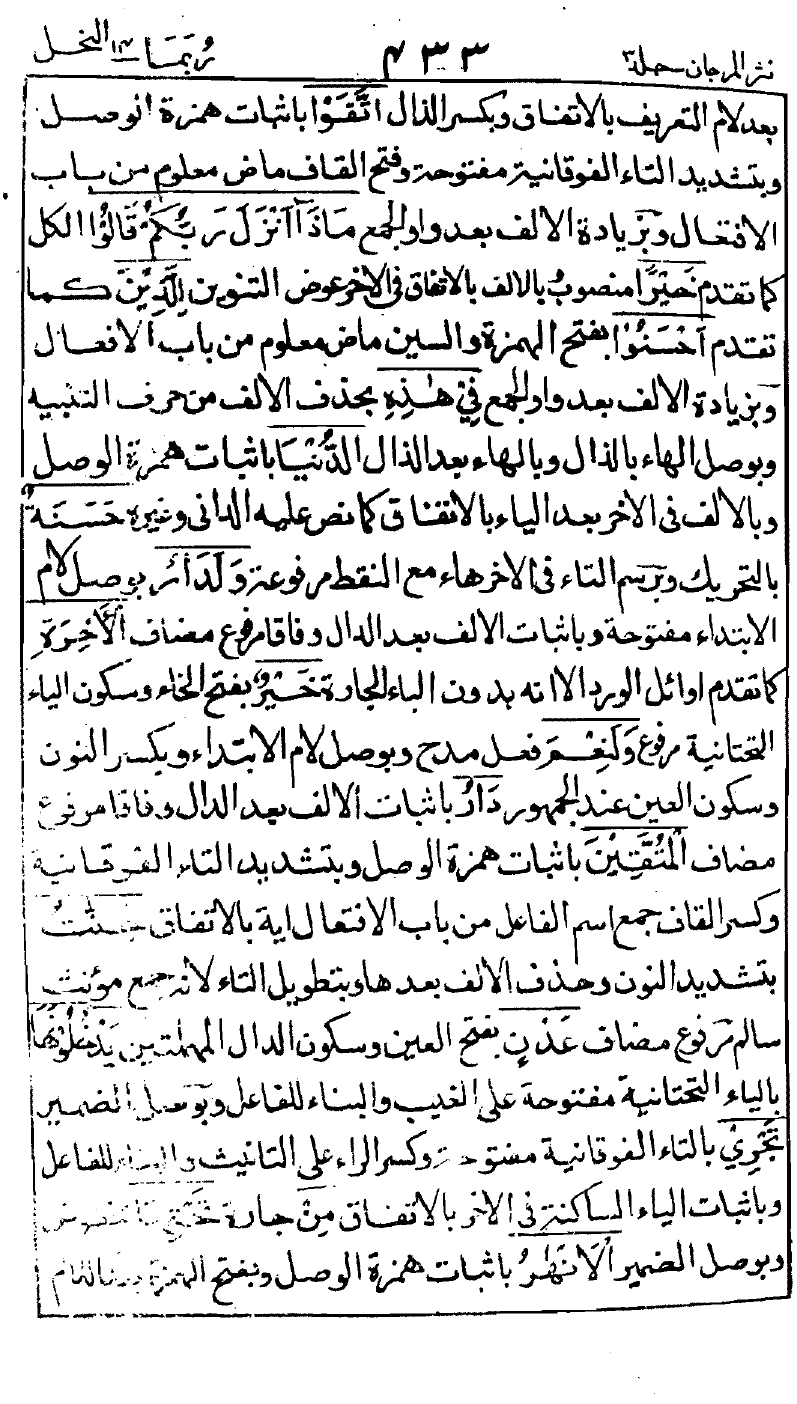 نثر المرجان جلد ٣ ٤٣٣ ربما ١٤ النحل
بعد لام التعريف بالاتفاق وبكسر الذال اتَّقَوْا باثبات همزة الوصل
وبتشديد التاء الفوقانية مفتوحة وفتح القاف ماض معلوم من باب
الافتعال وبزيادة الالف بعد واو الجمع مَاذَآ اَنْزَلَ رَبُّكُمْ قَالُوْا الكل
كما تقدم خَيْرًا منصوب بالالف بالاتفاق فى الاخر عوض التنوين لِلَّذِيْنَ كما
تقدم اَحْسَنُوْا بفتح الهمزة والسين ماض معلوم من باب الافعال
وبزيادة الالف بعد واو الجمع فِيْ هٰذِهِ بحذف الالف من حرف التنبيه
وبوصل الهاء بالذال وبالهاء بعد الذال الدُّنْيَا باثبات همزة الوصل
وبالالف فى الاخر بعد الياء بالاتفاق كما نص عليه الدانى وغيره حَسَنَةٌ
بالتحريك وبرسم التاء فى الاخر هاء مع النقط مرفوعة وَلَدَارُ بوصل لام
الابتداء مفتوحة وباثبات الالف بعد الدال وفاقا مرفوع مضاف الْاٰخِرَةِ
كما تقدم اوائل الورد الا انه بدون الباء الجارة خَيْرٌ بفتح الخاء وسكون الياء
التحتانية مرفوع وَلَنِعْمَ فعل مدح وبوصل لام الابتداء وبكسر النون
وسكون العين عند الجمهور دَارُ باثبات الالف بعد الدال وفاقا مرفوع
مضاف الْمُتَّقِيْنَ باثبات همزة الوصل وبتشديد التاء الفوقانية
وكسر القاف جمع اسم الفاعل من باب الافتعال اية بالاتفاق جَنّٰتُ
بتشديد النون وحذف الالف بعدها وبتطويل التاء لانه جمع مؤنث
سالم مرفوع مضاف عَدْنٍ بفتح العين وسكون الدال المهملتين يَدْخُلُوْنَهَا
بالياء التحتانية مفتوحة على الغيب والبناء للفاعل وبوصل الضمير
تَجْرِيْ بالتاء الفوقانية مفتوحة وكسر الراء على التانيث والبناء للفاعل
وباثبات الياء الساكنة فى الاخر بالاتفاق مِنْ جارة تَحْتِهَا
وبوصل الضمير الْاَنْهٰرُ باثبات همزة الوصل وبفتح الهمزة